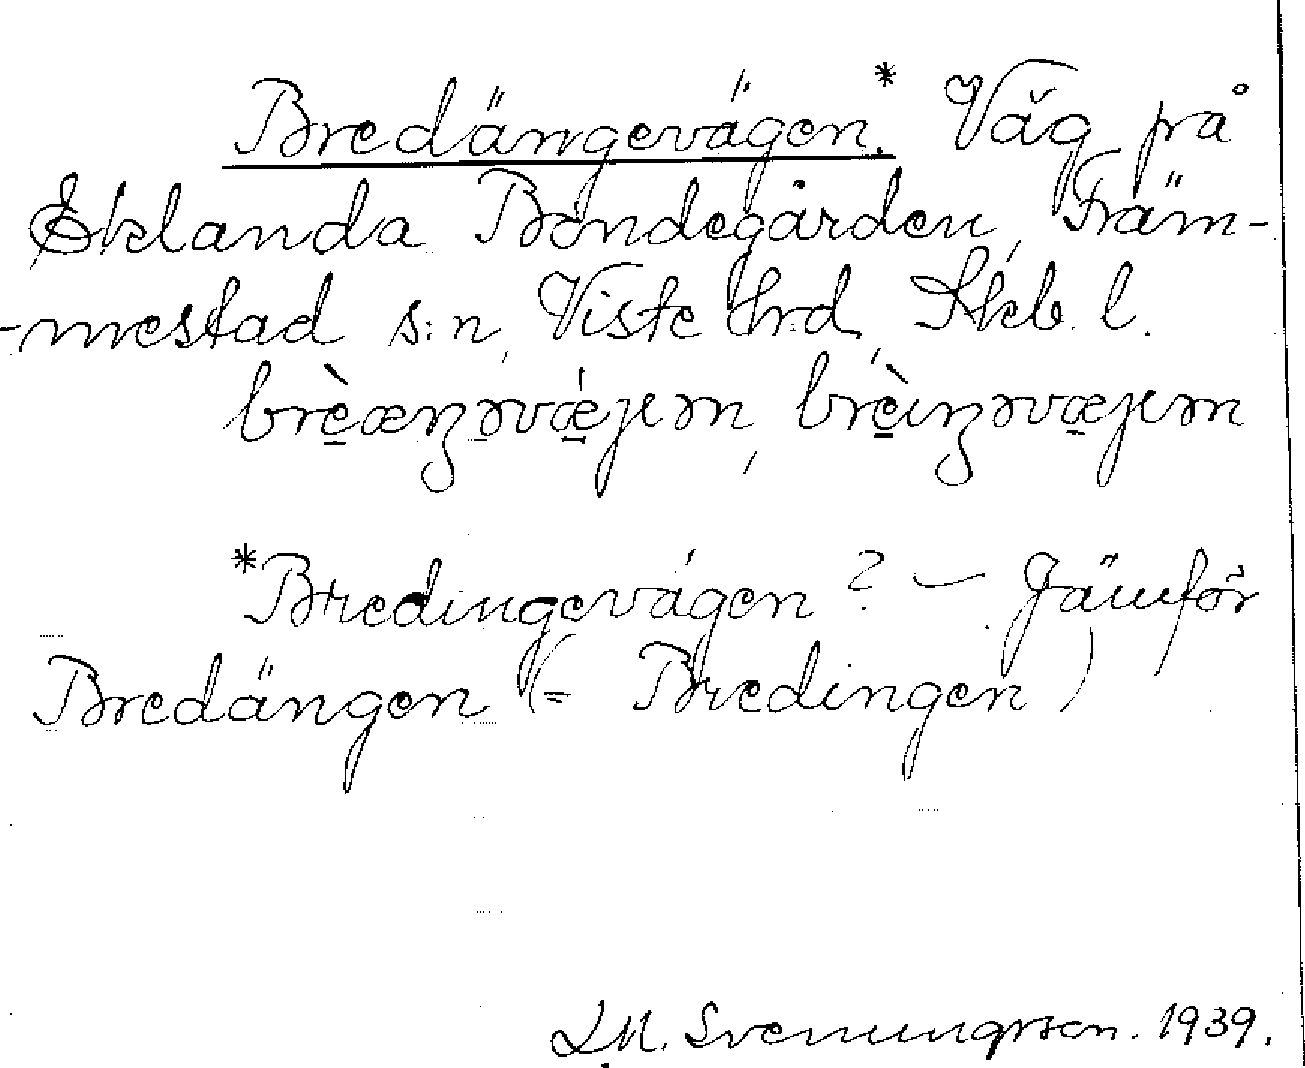 Bredängevägen.* Väg på
Eklanda Bondegården, Främ-
-mestad s:n, Viste hrd, Skb. l.
*Bredingevägen? — Jämför
Bredängen (= Bredingen)
L.M. Svenungsson. 1939.